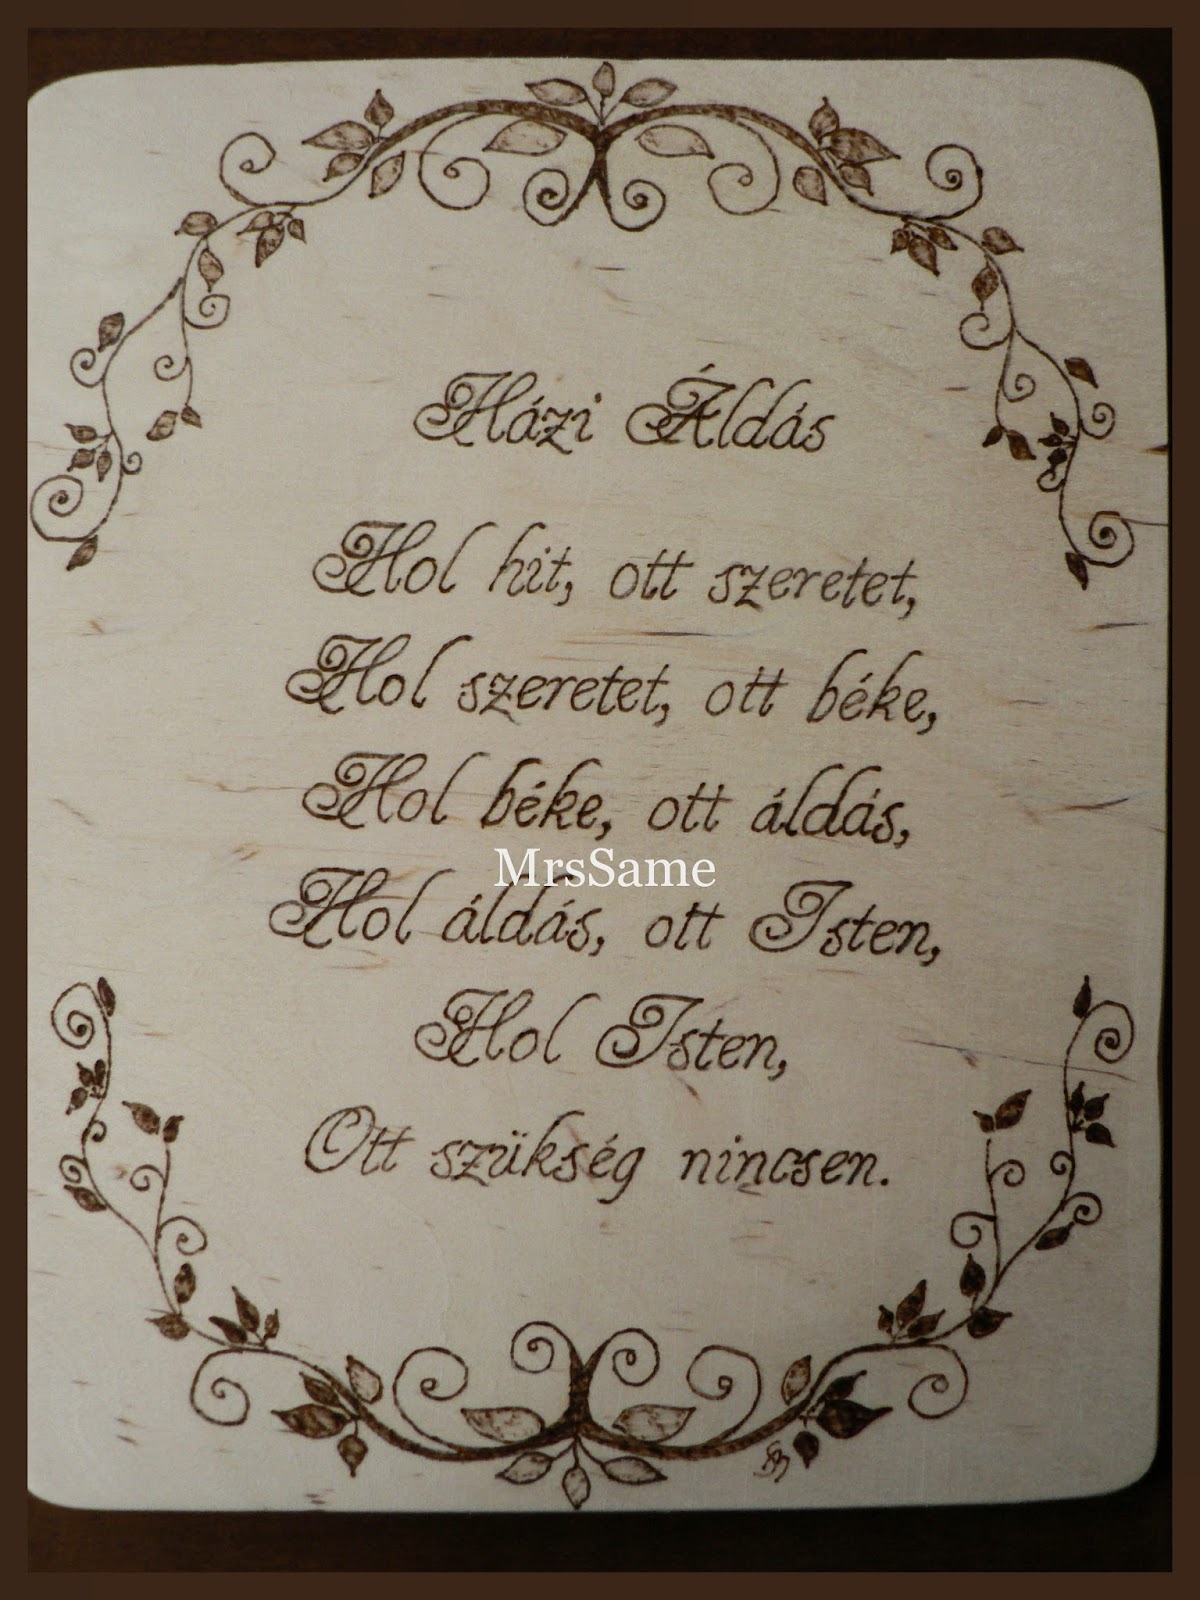 Házi Áldás
Hol hit, ott szeretet,
Hol szeretet, ott béke,
Hol béke, ott áldás,
MrsSame
Hol áldás, ott Isten,
Hol Isten,
Ott szükség nincsen.